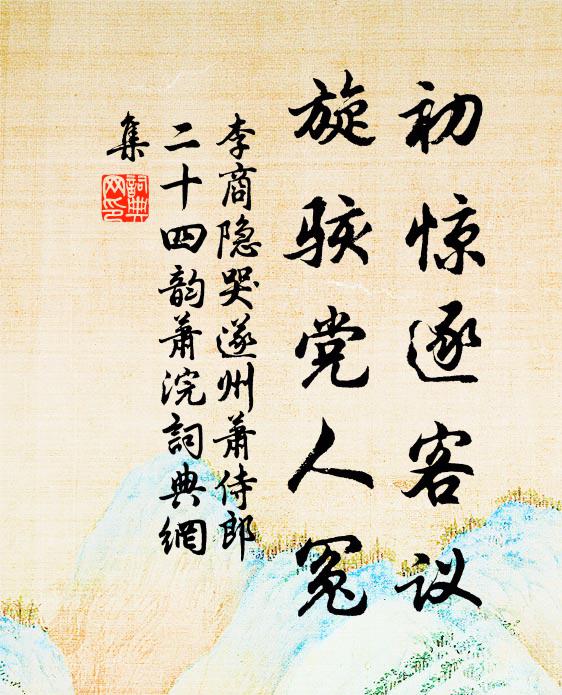 初惊逐客议
旋骇党人冤
李商隐哭遂州萧侍郎
二十四韵萧浣詞典網
集
詞典
网印